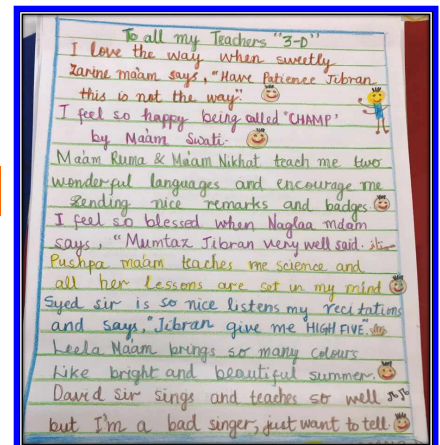 To all my Teachers "3-D"
I love the way when sweetly
Zarine ma'am says, "Have Patience Jibran
this is not the way".
I feel so happy being called "CHAMP"
by Maam Swati.
Maam Ruma & Maam Nikhat teach me two
wonderful languages and encourage me
sending nice remarks and badges
I feel so blessed when Naglaa mdam
says, "Mumtaz Jibran very well said.
Pushpa maam teaches me science and
all her lessons are set in my mind
Syed sir is so nice listens my recitations
and says, "Jibran give me HIGH FIVE".
Leela Maam brings so many colours
Like bright and beautiful summer.
David sir sings and teaches so well
but I'm a bad singer, just want to tell